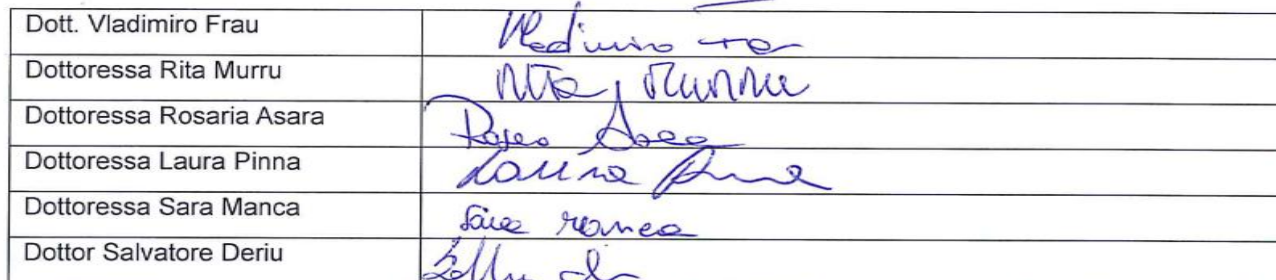 Dott. Vladimiro Frau Vladimiro
Dottoressa Rita Murru Rita Murru
Dottoressa Rosaria Asara
Dottoressa Laura Pinna Laura Pinna
Dottoressa Sara Manca Sara Manca
Dottor Salvatore Deriu